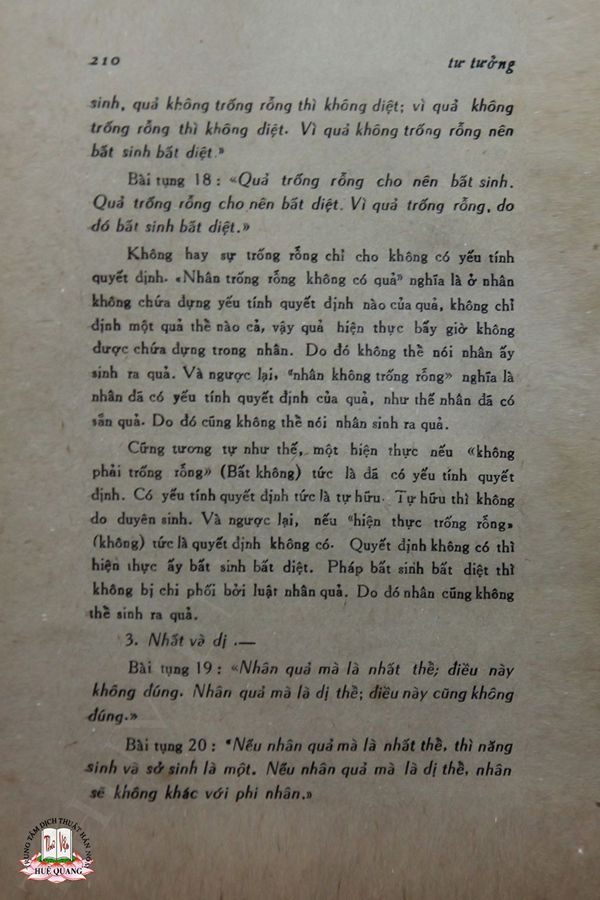 210
tư tưởng
sinh, quả không trống rỗng thì không diệt; vì quả không
trống rỗng thì không diệt. Vì quả không trống rỗng nên
bất sinh bất diệt.»
Bài tụng 18 : «Quả trống rỗng cho nên bất sinh.
Quả trống rỗng cho nên bất diệt. Vì quả trống rỗng, do
đó bất sinh bất diệt.»
Không hay sự trống rỗng chỉ cho không có yếu tính
quyết định. «Nhân trống rỗng không có quả» nghĩa là ở nhân
không chứa đựng yếu tính quyết định nào của quả, không chỉ
định một quả thể nào cả, vậy quả hiện thực bấy giờ không
được chứa đựng trong nhân. Do đó không thể nói nhân ấy
sinh ra quả. Và ngược lại, "nhân không trống rỗng» nghĩa là
nhân đã có yếu tính quyết định của quả, như thế nhân đã có
sẵn quả. Do đó cũng không thể nói nhân sinh ra quả.
Cũng tương tự như thế, một hiện thực nếu «không
phải trống rỗng» (Bất không) tức là đã có yếu tính quyết
định. Có yếu tính quyết định tức là tự hữu. Tự hữu thì không
do duyên sinh. Và ngược lại, nếu "hiện thực trống rỗng»
(không) tức là quyết định không có. Quyết định không có thì
hiện thực ấy bất sinh bất diệt. Pháp bất sinh bất diệt thì
không bị chi phối bởi luật nhân quả. Do đó nhân cũng không
thể sinh ra quả.
3. Nhất và dị .—
Bài tụng 19 : «Nhân quả mà là nhất thể; điều này
không đúng. Nhân quả mà là dị thể; điều này cũng không
đúng.»
Bài tụng 20 : "Nếu nhân quả mà là nhất thể, thì năng
sinh và sở sinh là một. Nếu nhân quả mà là dị thể, nhân
sẽ không khác với phi nhân.»
TRUNG TÂM DỊCH THUẬT HÁN NÔM
HUỆ QUANG